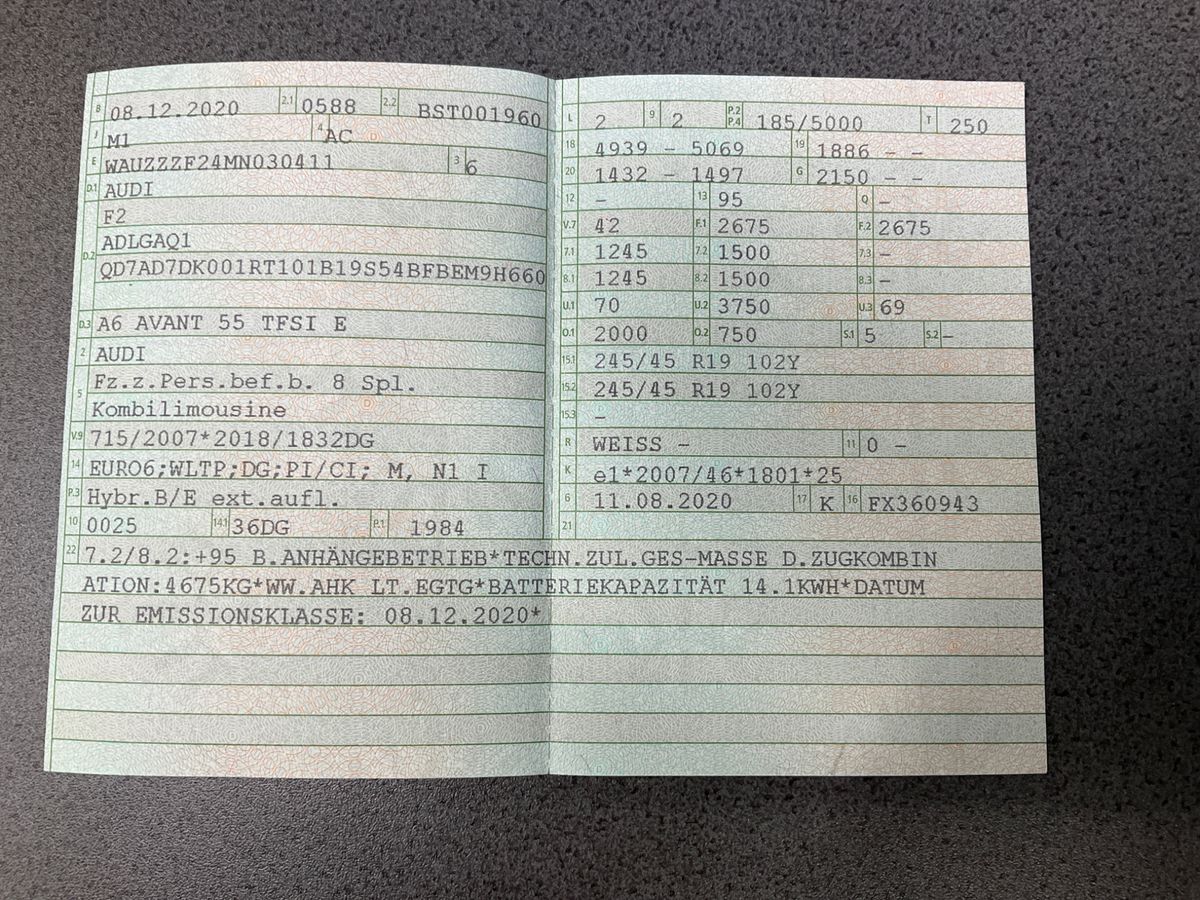 B 08.12.2020 2.1 0588 2.2 BST001960
J M1 4 AC
E WAUZZZF24MN030411 3 6
D.1 AUDI
F2
D.2 ADLGAQ1
QD7AD7DK001RT101B19S54BFBEM9H660
D.3 A6 AVANT 55 TFSI E
2 AUDI
5 Fz.z.Pers.bef.b. 8 Spl.
Kombilimousine
V.9 715/2007*2018/1832DG
14 EURO6;WLTP;DG;PI/CI; M, N1 I
P.3 Hybr.B/E ext.aufl.
10 0025 14.1 36DG P.1 1984
L 2 9 2 P.2 P.4 185/5000 T 250
18 4939 - 5069 19 1886 - -
20 1432 - 1497 G 2150 - -
12 - 13 95 Q -
V.7 42 F.1 2675 F.2 2675
7.1 1245 7.2 1500 7.3 -
8.1 1245 8.2 1500 8.3 -
U.1 70 U.2 3750 U.3 69
O.1 2000 O.2 750 S.1 5 S.2 -
15.1 245/45 R19 102Y
15.2 245/45 R19 102Y
15.3 -
R WEISS - 11 0 -
K e1*2007/46*1801*25
6 11.08.2020 17 K 16 FX360943
21
22 7.2/8.2:+95 B.ANHÄNGEBETRIEB*TECHN.ZUL.GES-MASSE D.ZUGKOMBIN
ATION:4675KG*WW.AHK LT.EGTG*BATTERIEKAPAZITÄT 14.1KWH*DATUM
ZUR EMISSIONSKLASSE: 08.12.2020*